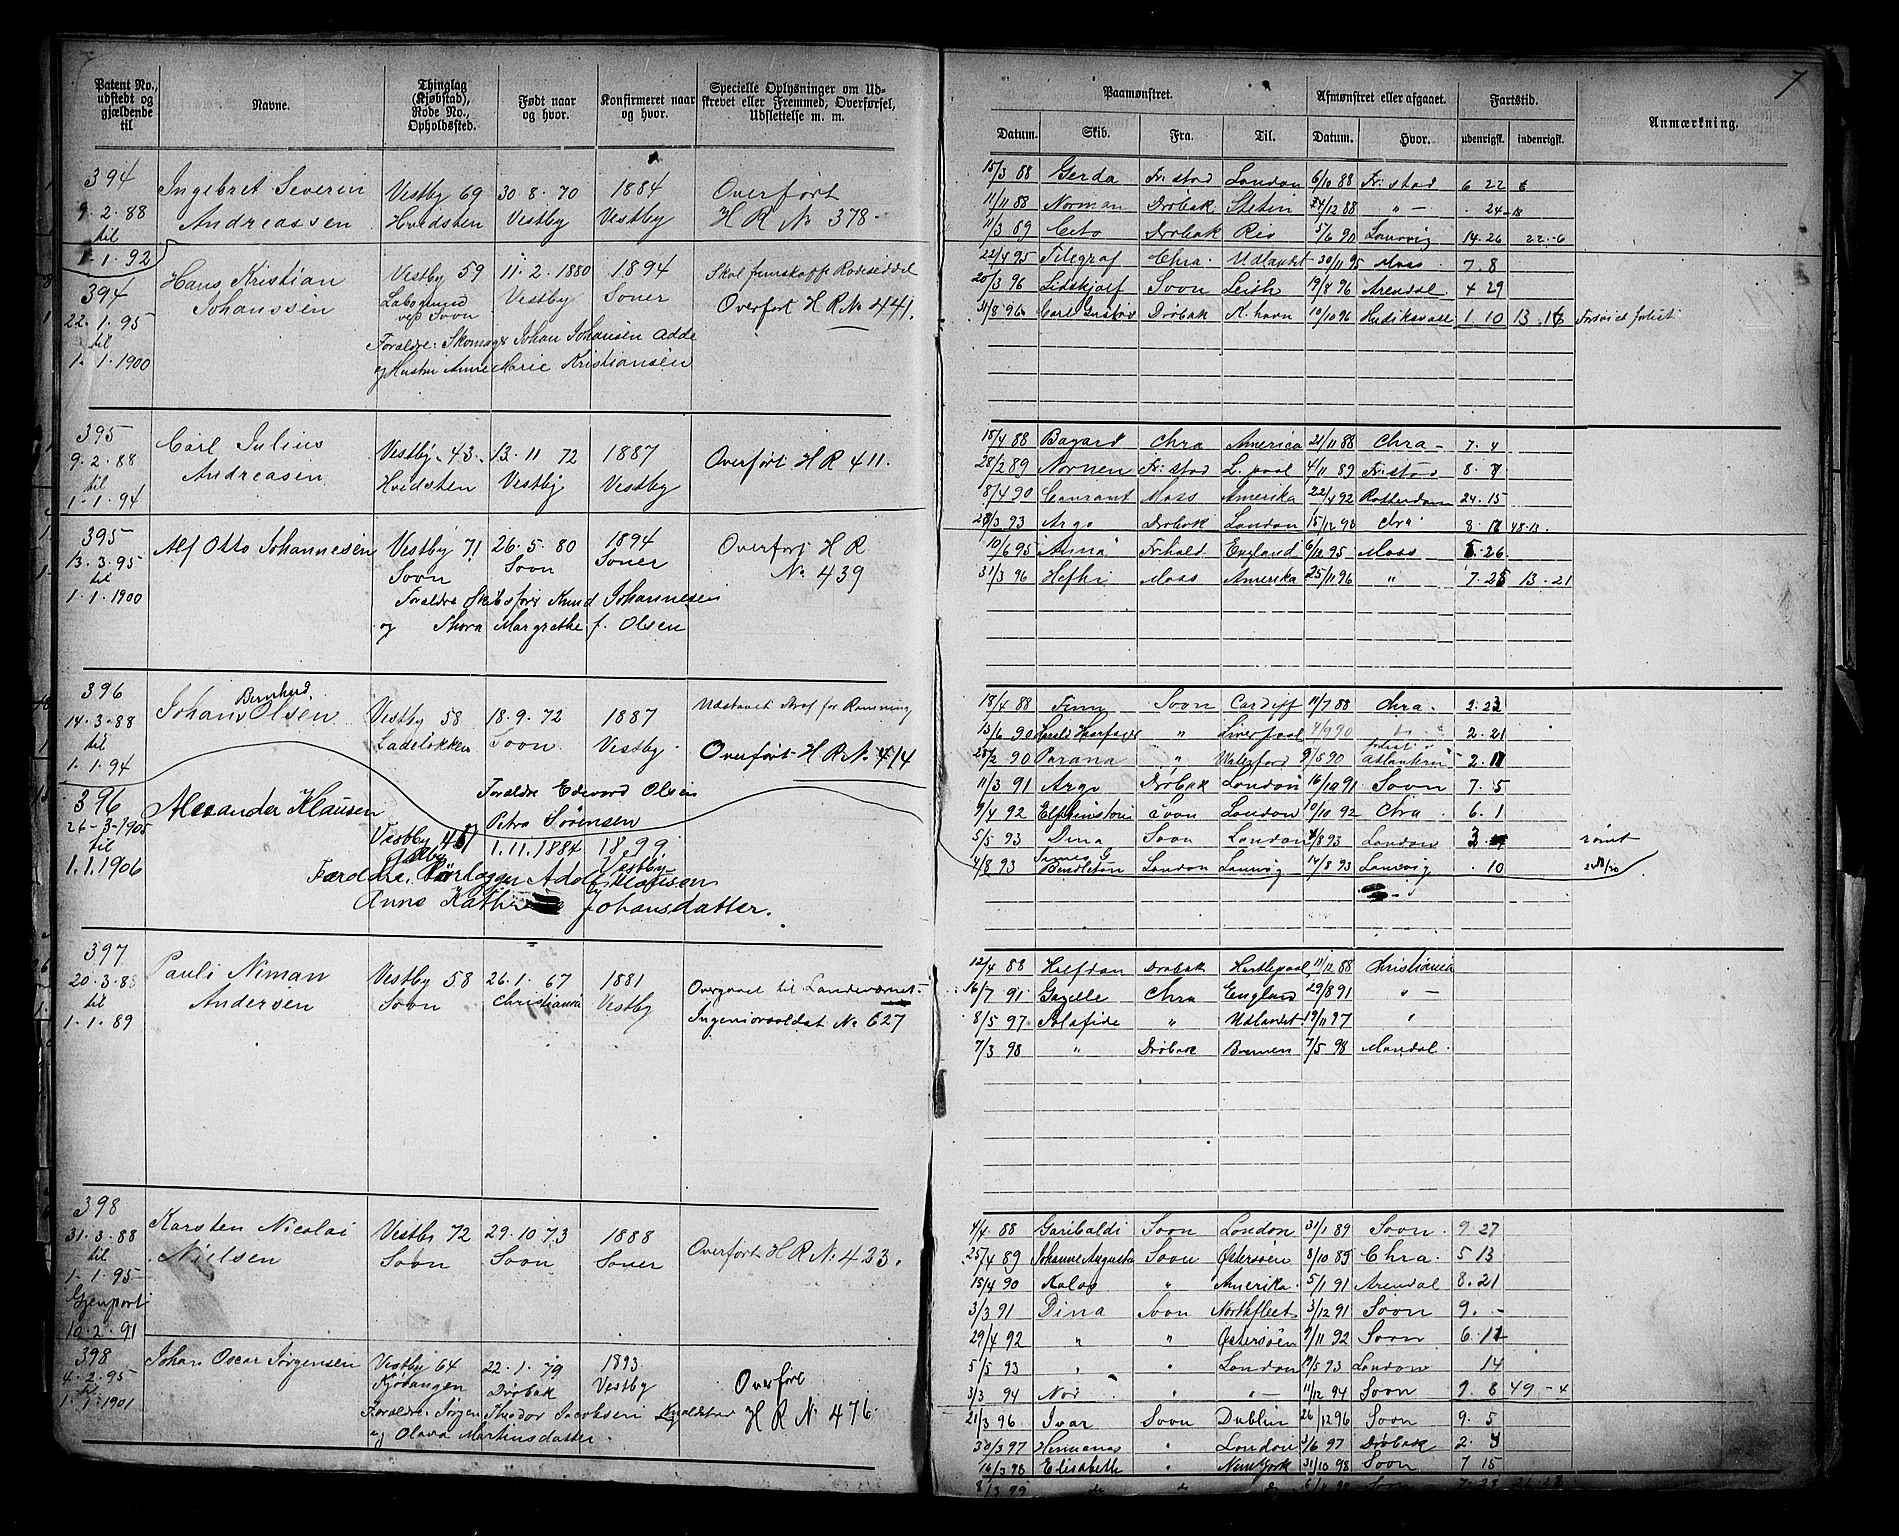 7
Patent No., udstedt og gjældende til
Navne.
Thinglag (Kjøbstad), Rode No., Opholdssted.
Født naar og hvor.
Konfirmeret naar og hvor.
Specielle Oplysninger om Udskrevet eller Fremmed, Overførsel, Udslettelse m. m.
Paamønstret.
Afmønstret eller afgaaet.
Fartstid.
Anmærkning.
Datum. Skib. Fra. Til. Datum. Hvor. udenrigsk. indenrigsk.
394 Ingebret Severin Vestby 69 30-8-70 1884 Overført
9-2-88 Andreassen Hvidsten Vestby Vestby H R No 378.
til
1-1-92
15/3 88 Gerda Fr.stad London 6/10 88 Fr.stad 6 22
11/11 88 Norman Drøbak Stetin 24/12 88 " - 24
11/3 89 Ceto Drøbak Rio 5/6 90 Laurvig 14-26 22-6
Hans Kristian Vestby 59 11-2-1880 1894
394 Johanssen Vestby Soner Overført H R No 441.
22-1-95 Soon
til Forældre: Johan Johansen
1-1-1900 og Hustru Anne Marie Kristiansen
22/4 95 Telegraf Chra. Udlandet 30/11 95 Moss 7 8
20/3 96 Lidskjalf Soon Leith 19/8 96 Arendal 4 29
31/8 96 Carl Gustav Drøbak K.havn 10/10 96 Hudiksvall 1 10 13 16 forlist
395 Carl Julius Vestby 43 13-11 72 1887 Overført H R 411.
9-2-88 Andreasen Hvidsten Vestby Vestby
til
1-1-94
18/4 88 Chra America 21/11 88 Chra - 7 4
28/2 89 Nornen Fr.stad L.pool 4/11 89 Fr.stad 8
8/4 90 Courant Moss Amerika 22/4 92 Rotterdam 24-15
Argo Drøbak London 15/12 93 Chra 8
395 Alf Otto Johannesen Vestby 71 26-5-80 1894 Overført H R
13-3-95 Soon Soon Soner No 439
til Forældre Skibsfører Knud Johannesen
1-1-1900 og Thora Margrethe f. Olsen
10/6 95 Anna Fr.hald England 6/12 95 Moss 5-26
31/3 96 Hefhi Moss Amerika 25/11 96 " 7-25 13-21
396 Johan Bernhard Olsen Vestby 58 18-9-72 1887 Straf for Rømning
14-3-88 Ladeløkken Soon Vestby Overført H R No 414
til
1-1-94
Forældre Edvard Olsen
Petra Sørensen
18/4 88 Finn Soon Cardiff 11/7 88 Chra.
13/6 90 Harald Haarfager " Liverpool 4/9 90 2-21
Parana " 9/5 90 forlist Atlanteren
11/3 91 Argo Drøbak London 16/10 91 Soon 7-5
9/4 92 Elphinstone Soon London 9/10 92 Chra 6-1
5/5 93 Dina Soon London London rømt
4/8 93 Bendleton London Laurvig 14/8 93 Laurvig 10
396 Alexander Klausen Vestby 46 1.11.1884 1899
26-3-1905 Vestby
til Færdre Adolf Klausen
1.1.1906 Anna Johansdatter.
397 Pauli Niman Vestby 58 26-1-67 1881 Overgaaet til Landeværnet
20-3-88 Andersen Soon Christiania Vestby Ingeniørsoldat No 627
til
1-1-89
12/4 88 Halfdan Drøbak Hartlepool 11/12 88 Christiania
16/7 91 Gazelle Chra England 29/8 91 " -
8/5 97 " Udlandet 19/11 97 "
7/3 98 " Drøbak Bremen 7/5 98 Mandal.
398 Karsten Nicolai Vestby 72 29-10-73 1888
31-3-88 Nielsen Soon Soon Soner Overført H R No. 433.
til
1-1-95
Gjenport
10-2-91
4/4 88 Garibaldi Soon London 31/1 89 Soon 9-27
25/4 89 Johanne Augusta Soon Østersøen 8/10 89 Chra. 5 13
15/4 90 Kalos " Amerika 5/1 91 Arendal 8-21
3/3 91 Dina Soon Northfleet 3/12 91 Soon 9 -
29/4 92 " " Østersøen 9/11 92 Soon 6-11
5/5 93 " " London 19/5 93 London 14
3/3 94 Nor " " - 11/12 94 Soon 9 8 49-4
398 Johan Oscar Jørgensen Vestby 64 22-1-79 1893 Overført
4-2-95 Kjøvangen Drøbak Vestby H R No 476
til Forældre: Jørgen Theodor Jacobsen
1-1-1901 og Olava Martinsdatter.
21/3 96 Ivar Soon Dublin 26/12 96 Soon 9 5
30/3 97 Hermanos " London 3/6 97 Drøbak 2-
16/3 98 Elisabeth " New York 31/10 98 Soon 7 15
8/3 99 do do do Soon 7-28